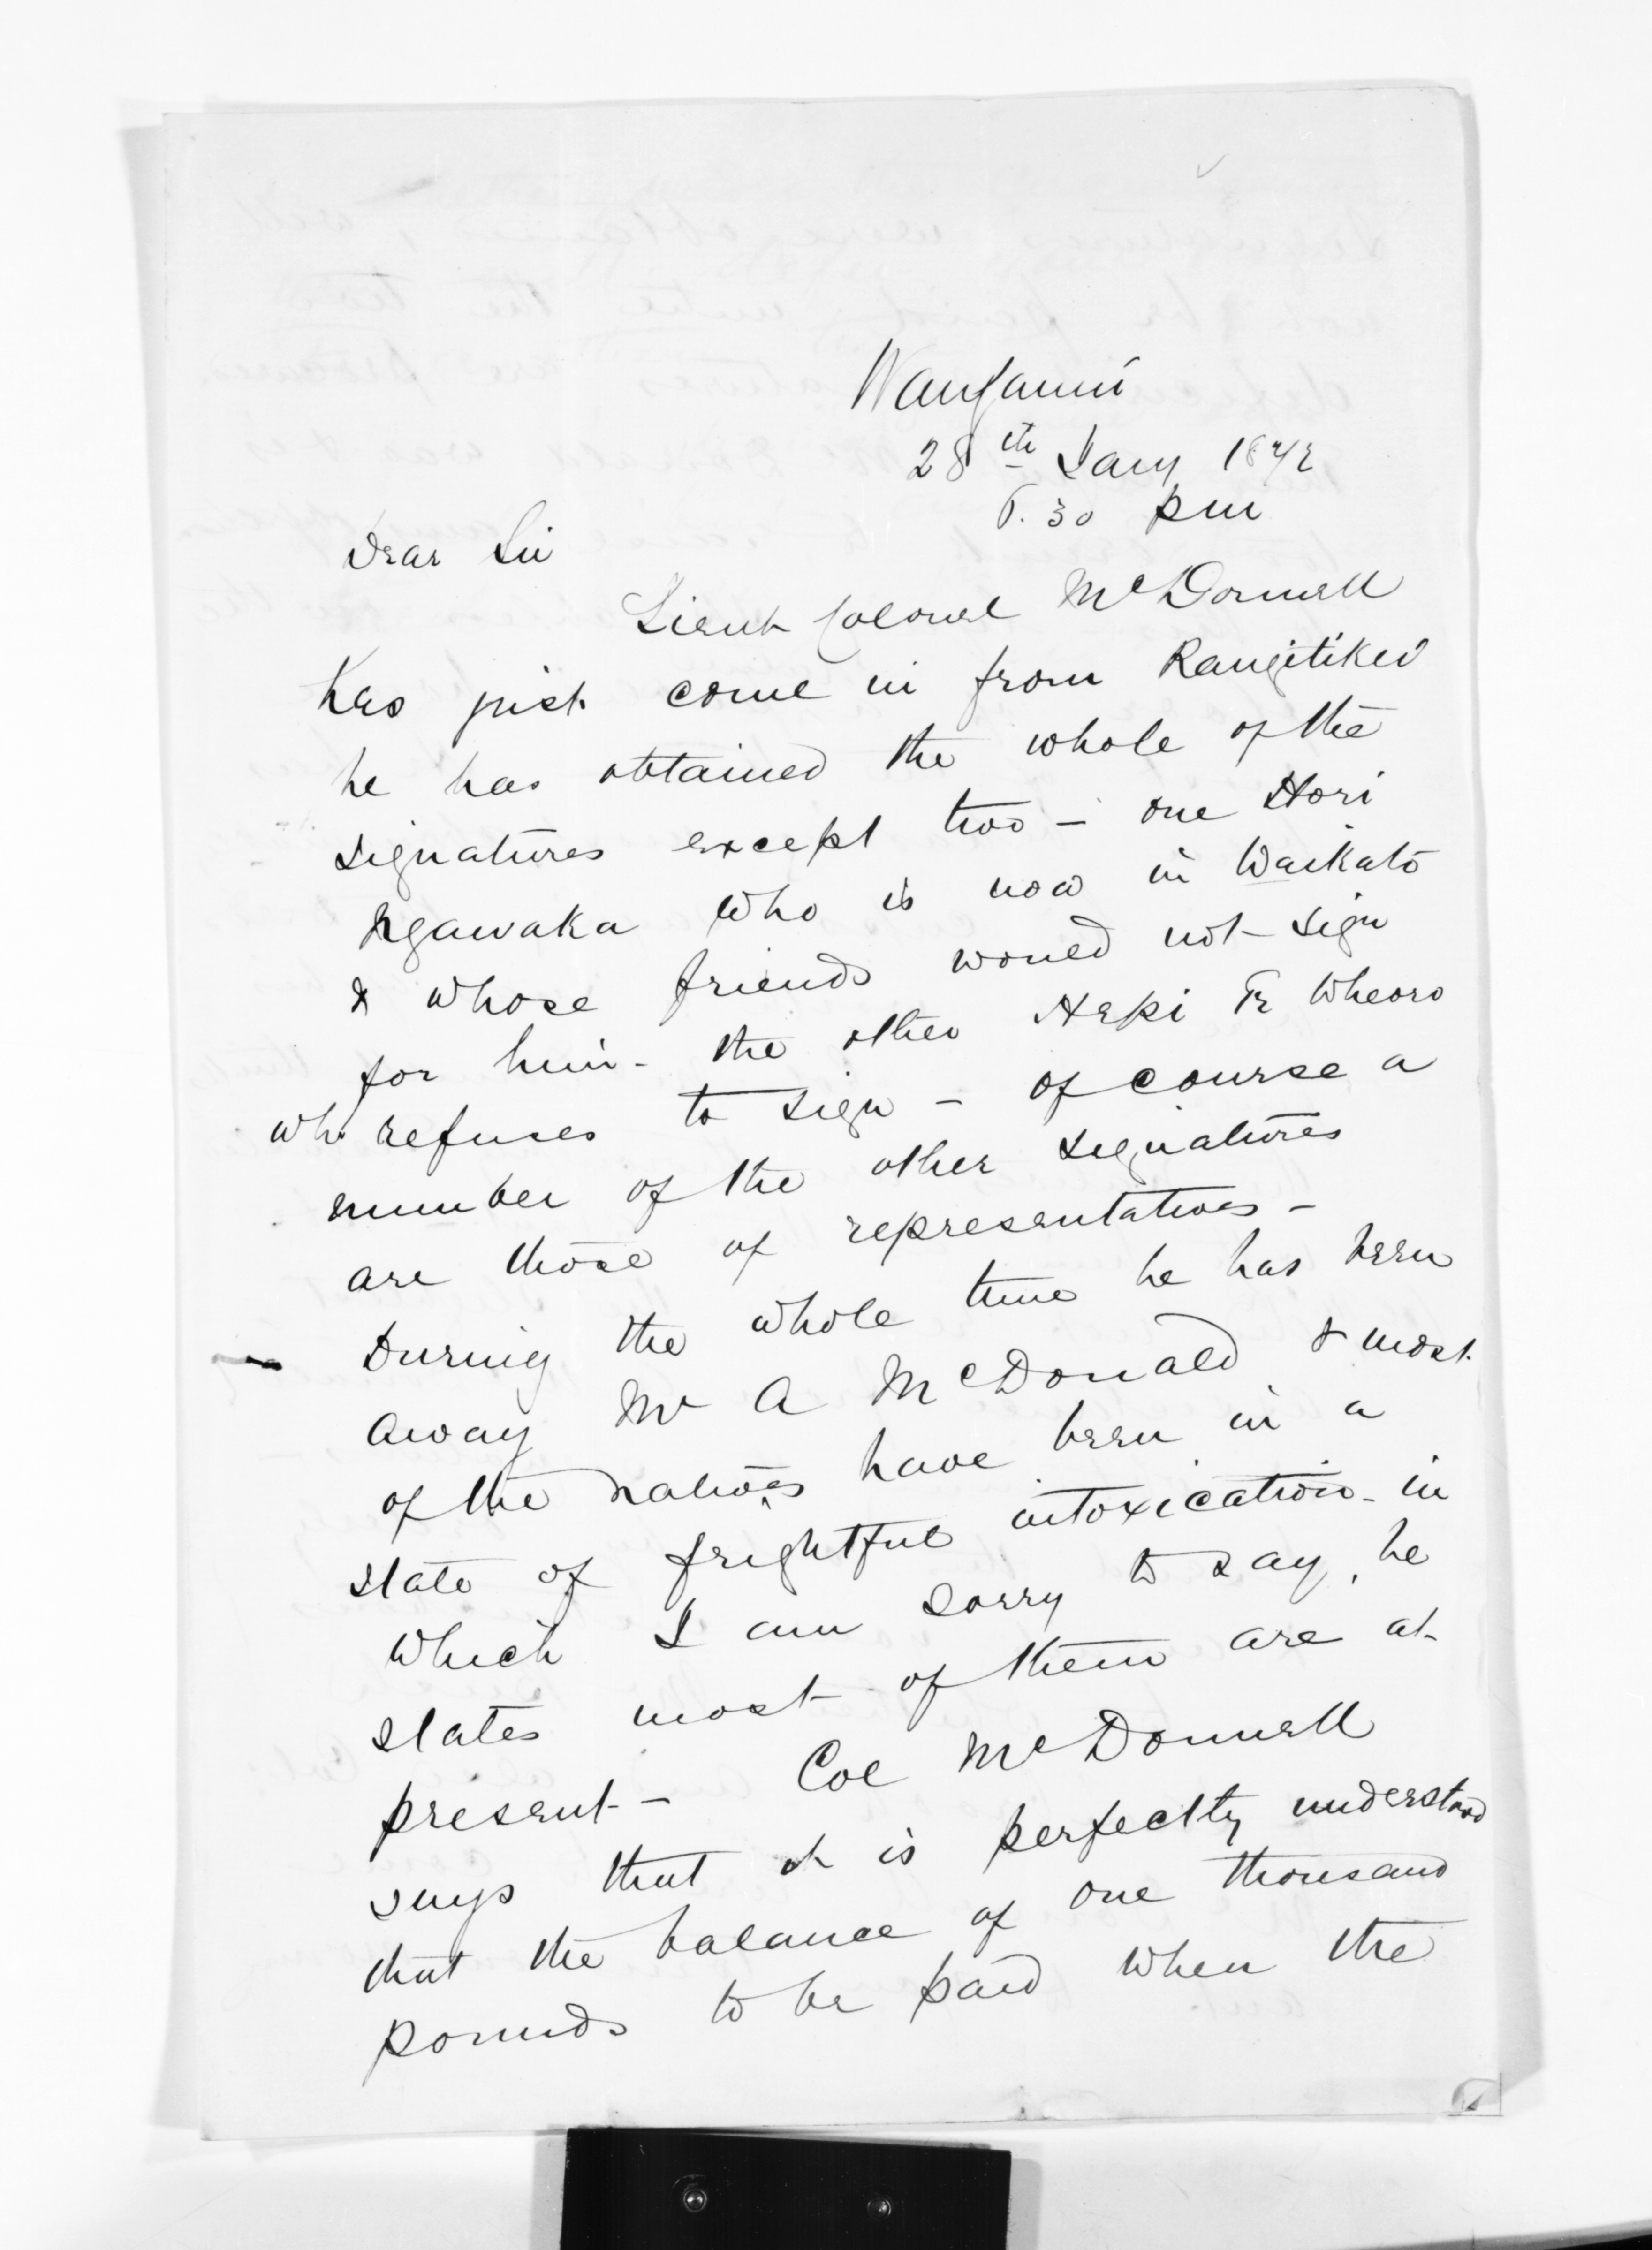 Wanganui
28th Jany 1872
6.30 pm
Dear Sir
Lieut Colonel McDonnell
has just come in from Rangitikei
he has obtained the whole of the
signatures except two - one Hori
Ngawaka who is now in Waikato
& whose friends would not sign
for him - the other Hepi Te Wheoro
who refuses to sign - of course a
number of the other signatures
are those of representatives -
During the whole time he has been
away Mr A McDonald & most
of the natives have been in a
state of frightful intoxication - in
which I am sorry to say, he
states most of them are at
present - Col McDonnell
says that it is perfectly understood
that the balance of one thousand
pounds to be paid when the